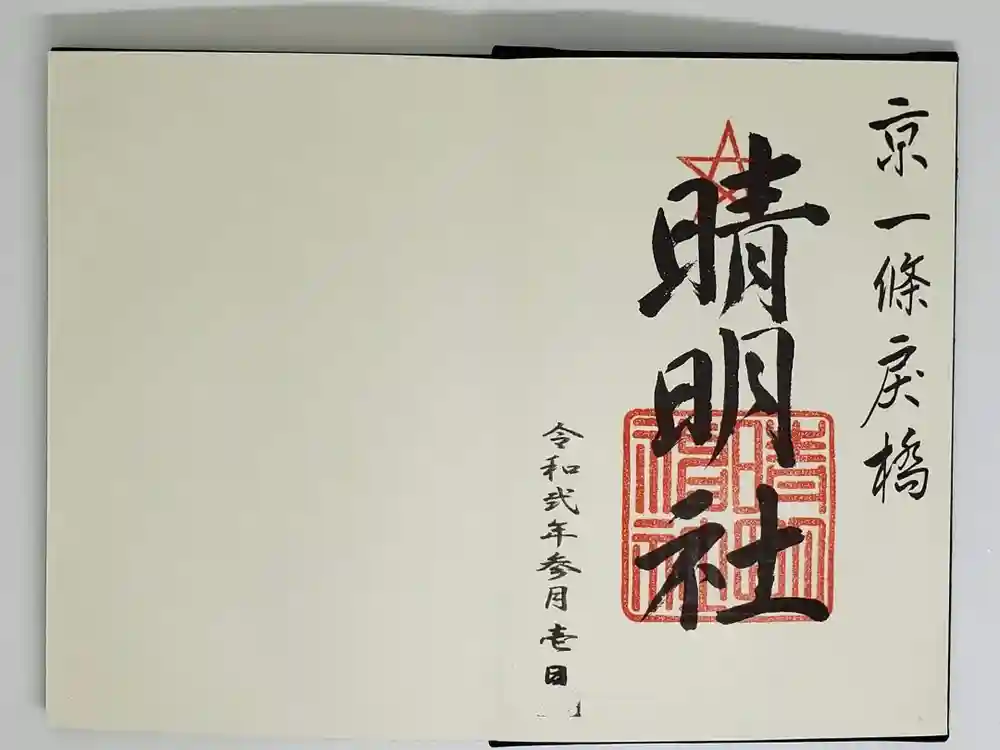 京一條戻橋
晴明社
晴明
神社
令和弐年参月壱日